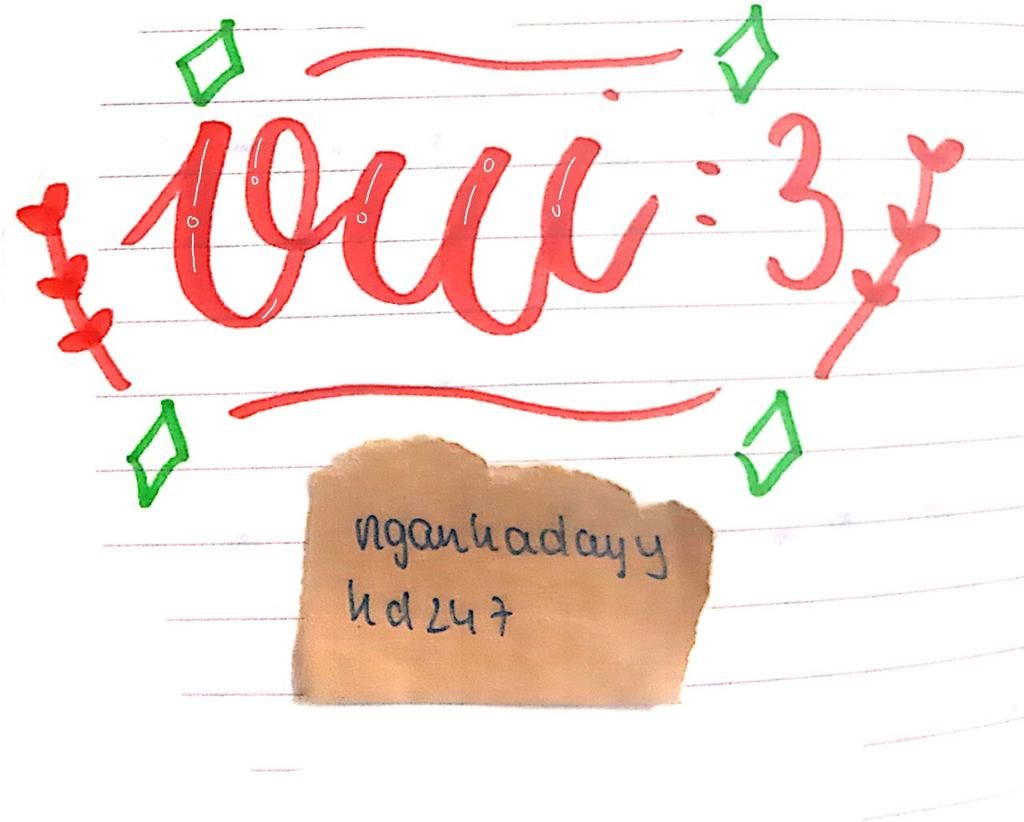 Vui :3
nganhadayy
hd247